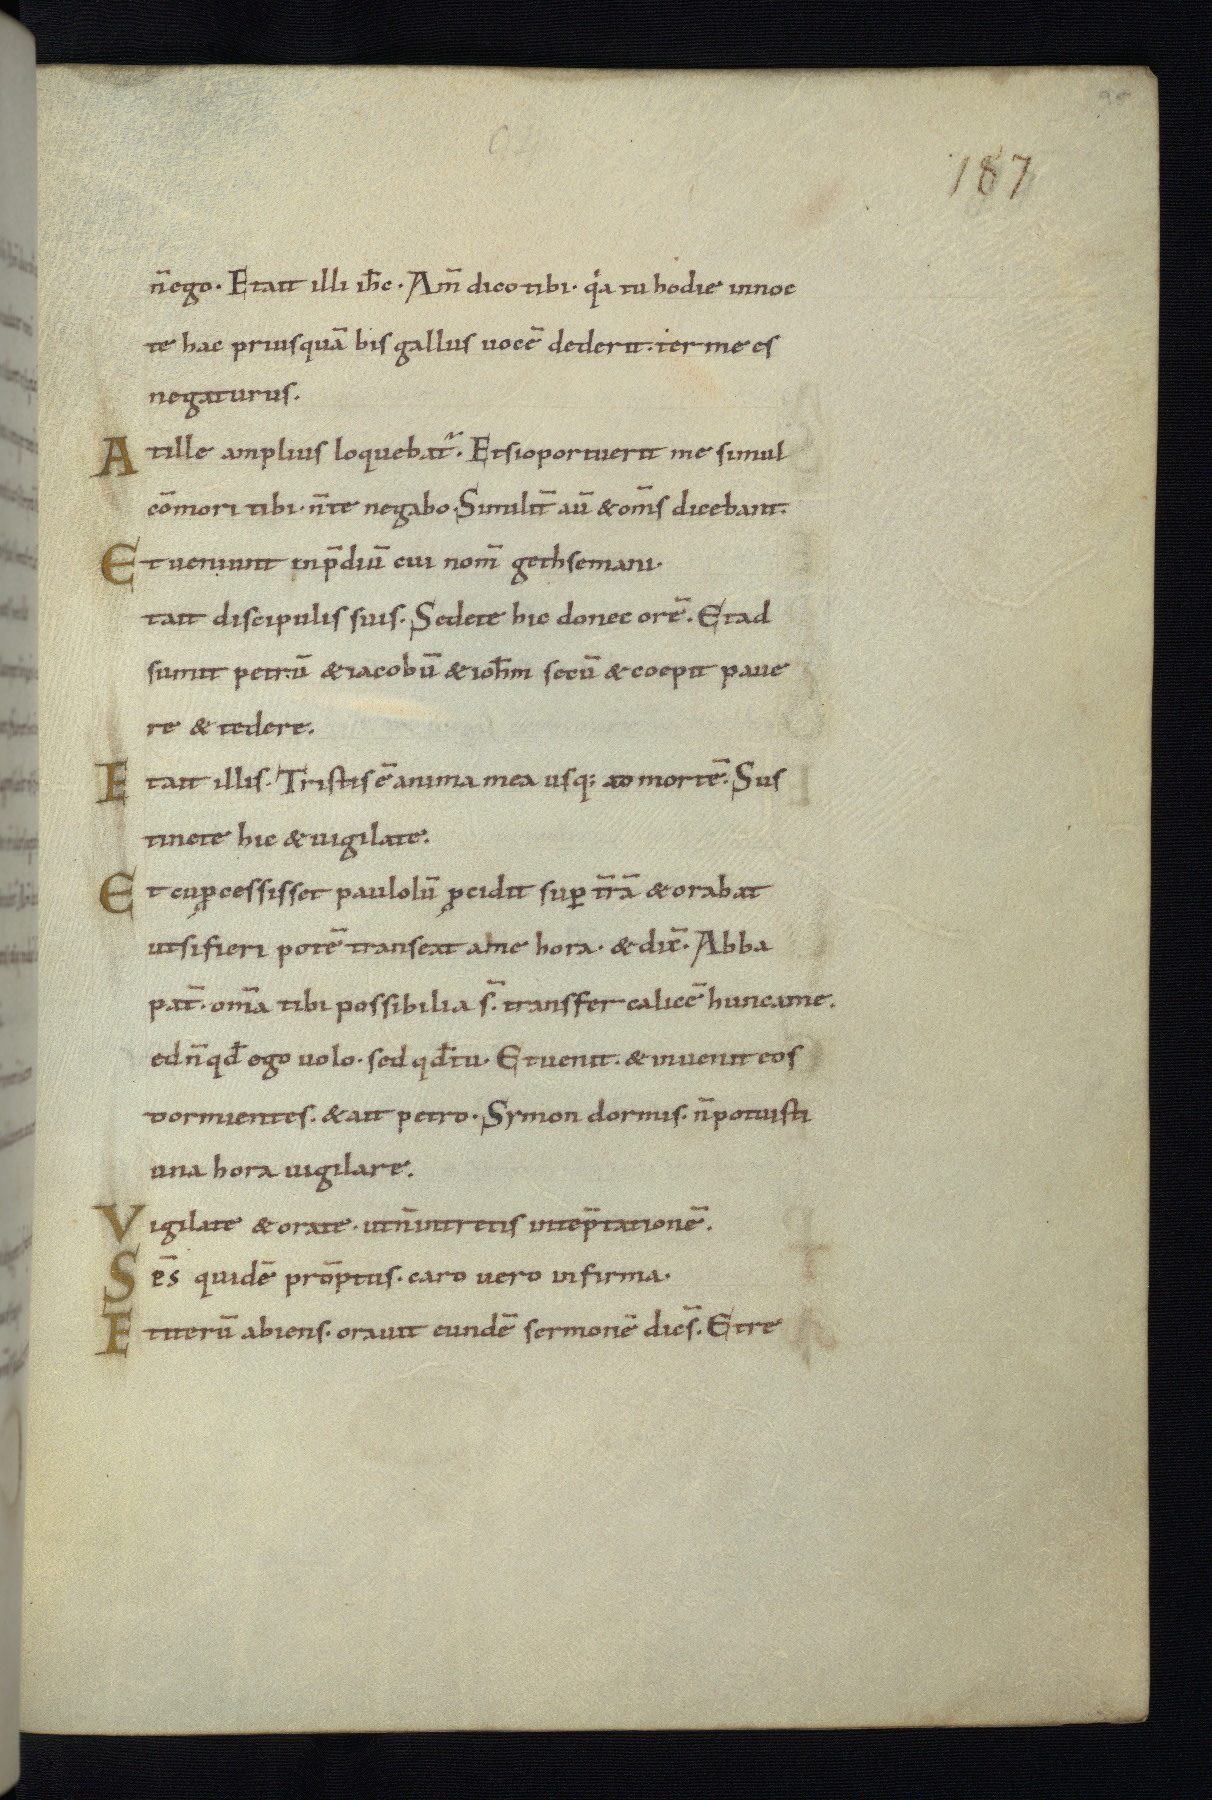 187
n̄ego. Etait illi ih̄c. Am̄ dico tibi. qͥa tu hodie innoc
te hac priusquā bis gallus uocē dederit. ter me es
negaturus.
Atille amplius loquebat̄. Etsioportuerit me simul
cōmori tibi. n̄te negabo. Similit̄ aū & om̄s dicebant.
Et ueniunt inp̄diū cui nom̄ gethsemani.
tait discipulis suis. Sedete hic donec orē. Etad
sumit petrū & iacobū & ioh̄m secū & coepit paue
re & tedere.
Etait illis. Tristis ē anima mea usq; ad mortē. Sus
tinete hic & uigilate.
Et cuꝓcessisset paululū ꝓcidit suꝑ tr̄ā & orabat
utsifieri potē transeat ame hora. & dix̄. Abba
pat̄. om̄a tibi possibilia s̄. transfer calicē huncame.
edn̄qd̄ ego uolo. sed qd̄tu. Etuenit. & inuenit eos
dormientes. & ait petro. Symon dormis. n̄potuisti
una hora uigilare.
Vigilate & orate. utn̄intretis intep̄tationē.
Sp̄s quidē prōptus. caro uero infirma.
Etiterū abiens. orauit eundē sermonē dic̄s. Etre